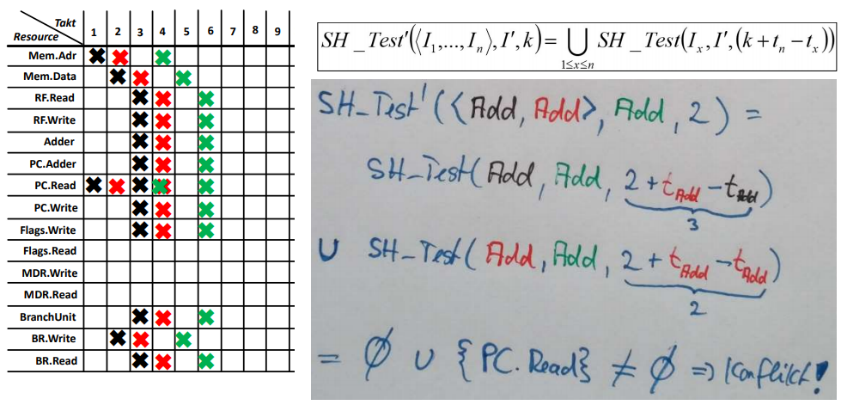 Takt
Resource 1 2 3 4 5 6 7 8 9
Mem.Adr
Mem.Data
RF.Read
RF.Write
Adder
PC.Adder
PC.Read
PC.Write
Flags.Write
Flags.Read
MDR.Write
MDR.Read
BranchUnit
BR.Write
BR.Read
SH_Test'(⟨I₁,...,Iₙ⟩,I',k)= ⋃ SH_Test(Iₓ,I',(k+tₙ−tₓ))
1≤x≤n
SH_Test'(<Add, Add>, Add, 2) =
SH_Test(Add, Add, 2+t_Add−t_Add)
3
∪ SH_Test(Add, Add, 2+t_Add−t_Add)
2
= ∅ ∪ {PC.Read} ≠ ∅ => Konflikt!